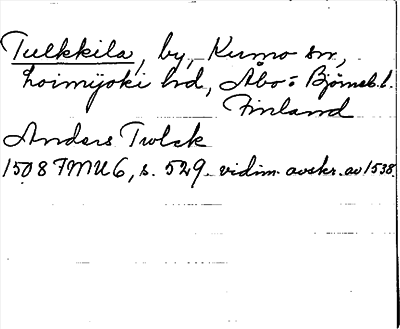 Tulkkila, by, Kumo sn,
Loimijoki hd, Åbo o Björneb. l.
Finland
Anders Trolck
1508 FMU 6, s. 529. vidim. avskr. av 1538.